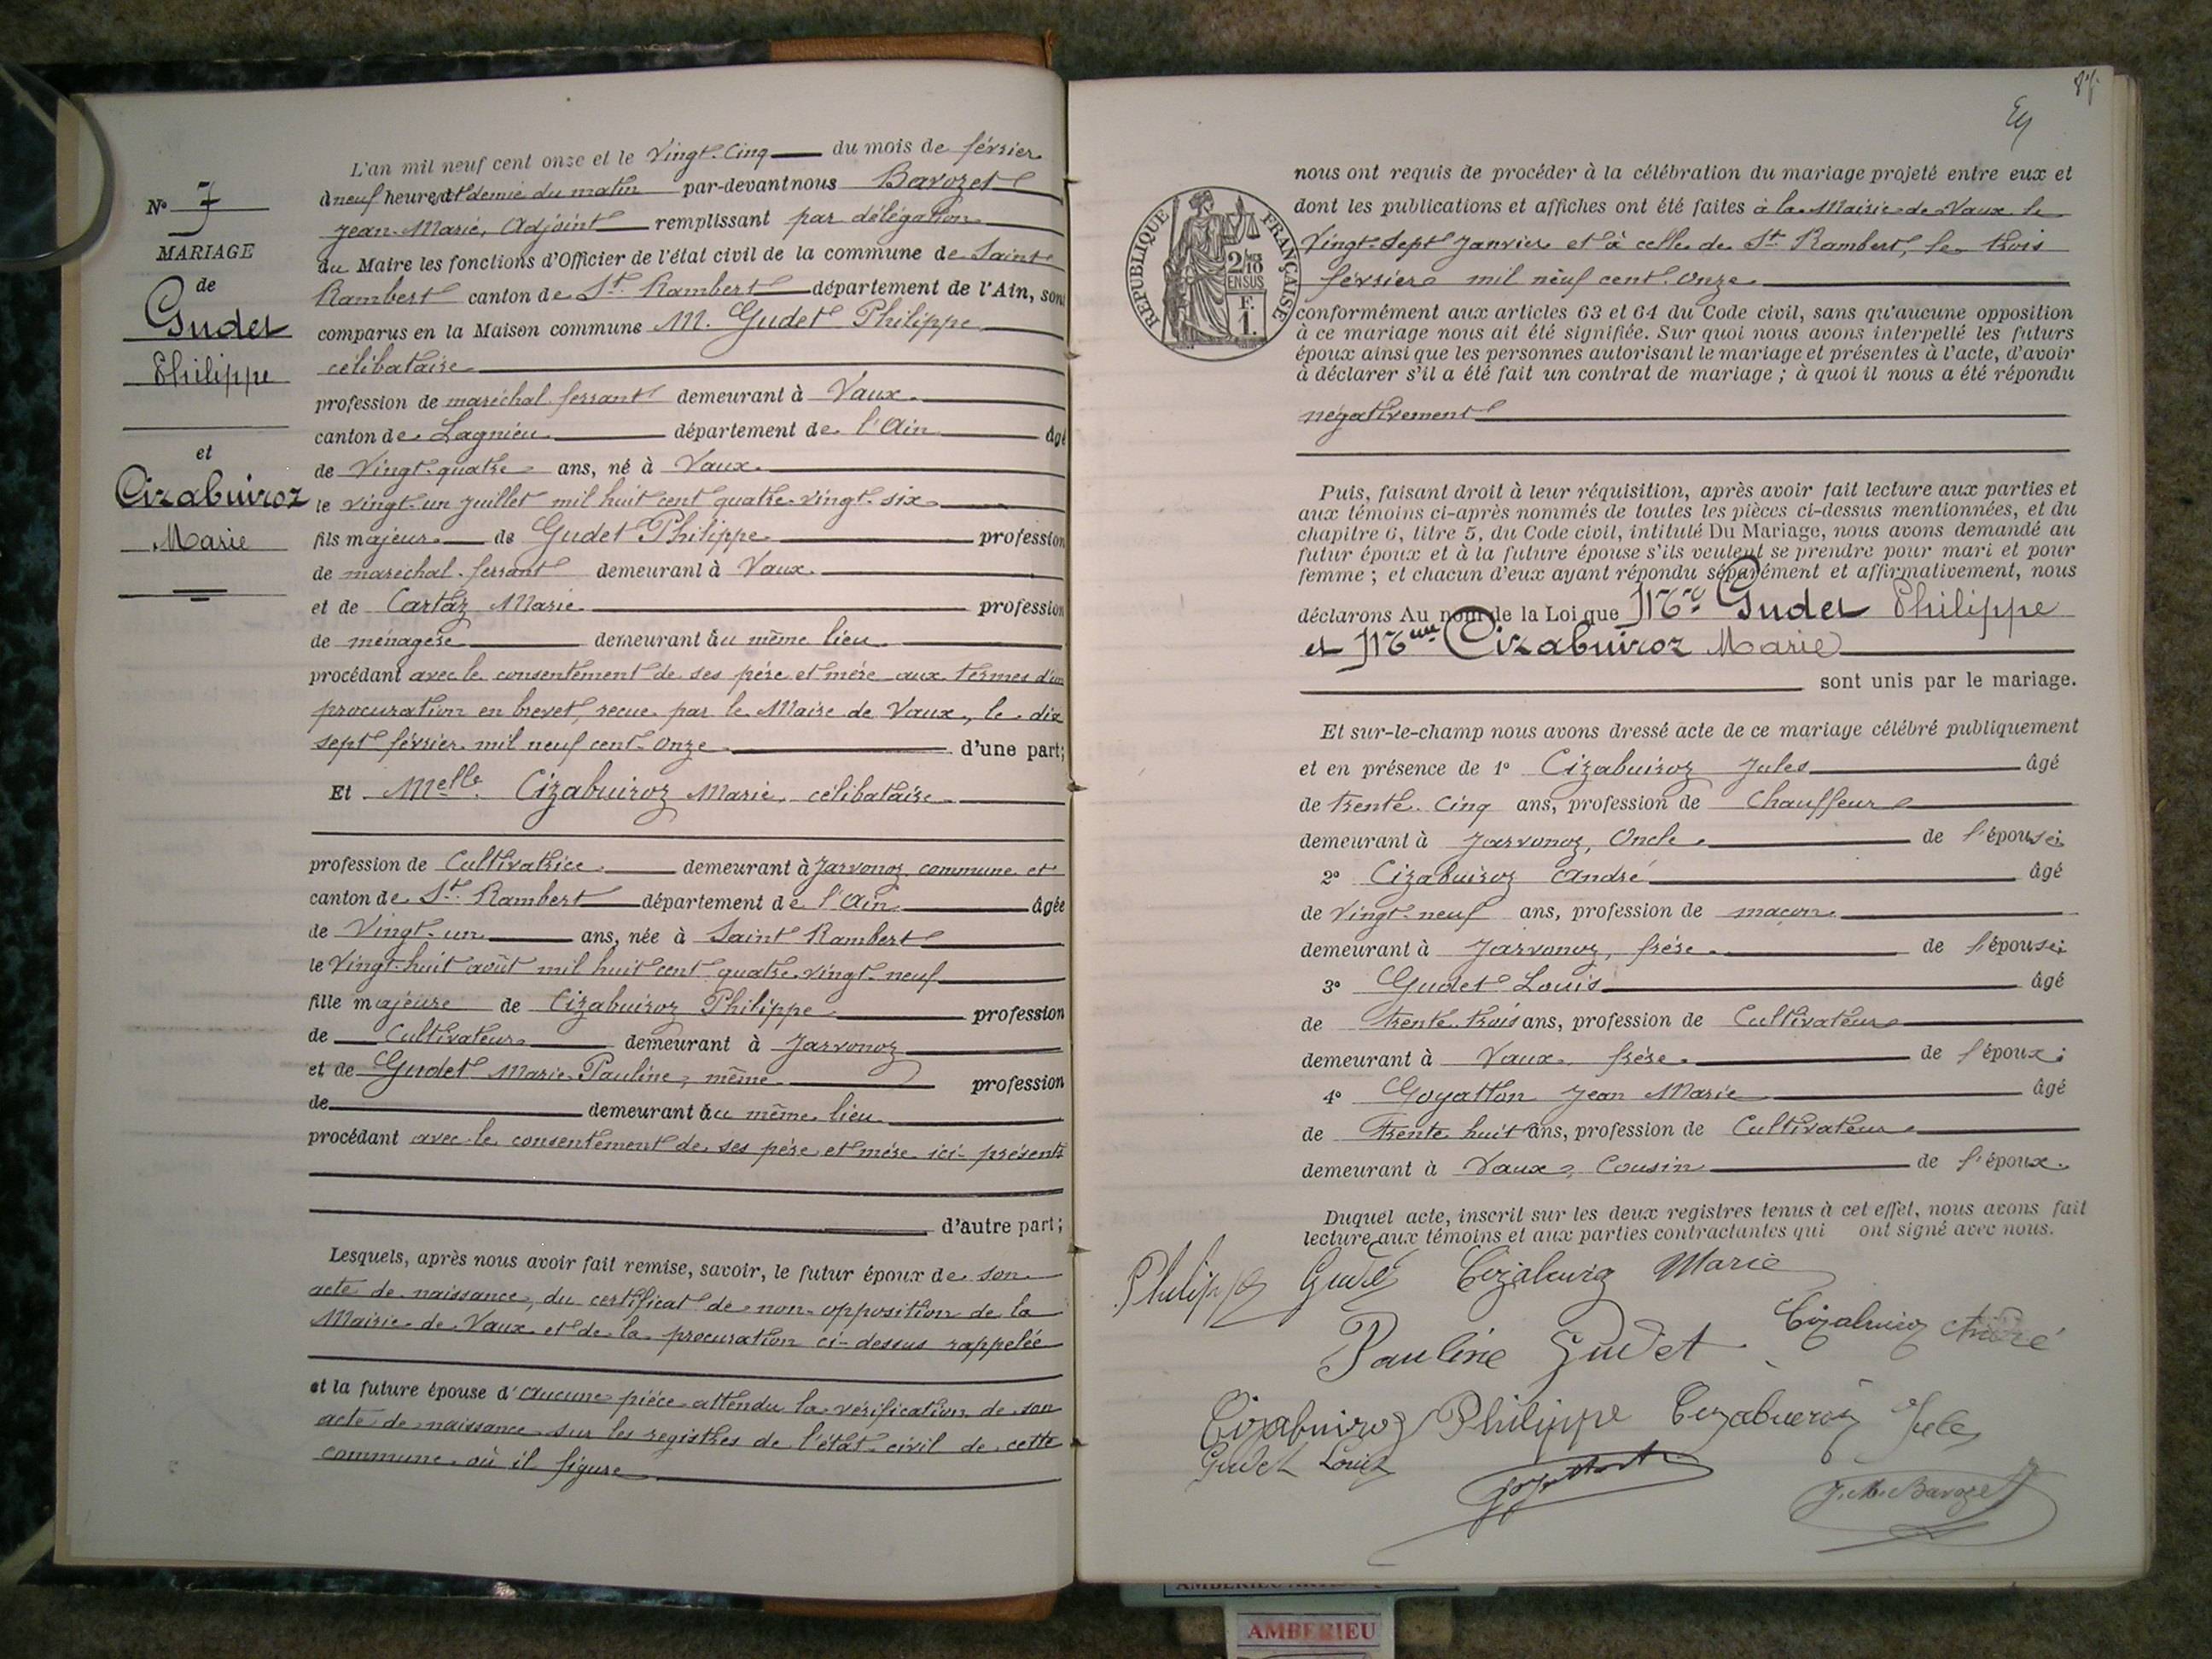 N° 7
MARIAGE
de
Gudet
Philippe
et
Cizabuiroz
Marie
L'an mil neuf cent onze et le Vingt-Cinq du mois de février
à neuf heures et demie du matin par-devant nous Bavozet
Jean-Marie, Adjoint remplissant par délégation
du Maire les fonctions d'Officier de l'état civil de la commune de Saint
Rambert canton de St. Rambert département de l'Ain, sont
comparus en la Maison commune M. Gudet Philippe
célibataire
profession de maréchal ferrant demeurant à Vaux
canton de Lagnieu département de l'Ain âgé
de Vingt-quatre ans, né à Vaux
le vingt-un juillet mil huit cent quatre-vingt-six
fils majeur de Gudet Philippe profession
de maréchal-ferrant demeurant à Vaux
et de Cartaz Marie profession
de ménagère demeurant au même lieu
procédant avec le consentement de ses père et mère aux termes d'un
procuration en brevet, reçue par le Maire de Vaux, le dix
sept février mil neuf cent-onze d'une part;
Et Melle Cizabuiroz Marie, célibataire
profession de Cultivatrice demeurant à Javornoz commune et
canton de St. Rambert département de l'Ain âgée
de Vingt-un ans, née à Saint Rambert
le Vingt-huit août mil huit cent quatre-vingt-neuf
fille majeure de Cizabuiroz Philippe profession
de Cultivateur demeurant à Javornoz
et de Gudet Marie Pauline, même profession
de demeurant au même lieu
procédant avec le consentement de ses père et mère ici-présents
d'autre part;
Lesquels, après nous avoir fait remise, savoir, le futur époux de son
acte de naissance, du certificat de non-opposition de la
Mairie de Vaux et de la procuration ci-dessus rappelée
et la future épouse d'aucune pièce attendu la vérification de son
acte de naissance sur les registres de l'état-civil de cette
commune où il figure
87
REPUBLIQUE FRANÇAISE
2/10
EN SUS
F.
1.
nous ont requis de procéder à la célébration du mariage projeté entre eux et
dont les publications et affiches ont été faites à la Mairie de Vaux le
Vingt-Sept Janvier et à celle de St. Rambert, le trois
février mil neuf cent. onze
conformément aux articles 63 et 64 du Code civil, sans qu'aucune opposition
à ce mariage nous ait été signifiée. Sur quoi nous avons interpellé les futurs
époux ainsi que les personnes autorisant le mariage et présentes à l'acte, d'avoir
à déclarer s'il a été fait un contrat de mariage ; à quoi il nous a été répondu
négativement
Puis, faisant droit à leur réquisition, après avoir fait lecture aux parties et
aux témoins ci-après nommés de toutes les pièces ci-dessus mentionnées, et du
chapitre 6, titre 5, du Code civil, intitulé Du Mariage, nous avons demandé au
futur époux et à la future épouse s'ils veulent se prendre pour mari et pour
femme ; et chacun d'eux ayant répondu séparément et affirmativement, nous
déclarons Au nom de la Loi que Mr Gudet Philippe
et Melle Cizabuiroz Marie
sont unis par le mariage.
Et sur-le-champ nous avons dressé acte de ce mariage célébré publiquement
et en présence de 1° Cizabuiroz Jules âgé
de trente. Cinq ans, profession de Chauffeur
demeurant à Javornoz, Oncle de l'épouse;
2° Cizabuiroz André âgé
de Vingt-neuf ans, profession de maçon
demeurant à Javornoz, frère de l'épouse;
3° Gudet Louis âgé
de trente trois ans, profession de Cultivateur
demeurant à Vaux, frère de l'époux;
4° Goyatton Jean Marie âgé
de trente huit ans, profession de Cultivateur
demeurant à Vaux, Cousin de l'époux.
Duquel acte, inscrit sur les deux registres tenus à cet effet, nous avons fait
lecture aux témoins et aux parties contractantes qui ont signé avec nous.
Philippe Gudet Cizabuiroz Marie
Pauline Gudet Cizabuiroz André
Cizabuiroz Philippe Cizabuiroz Jules
Gudet Louis J. M. Bavozet
AMBERIEU